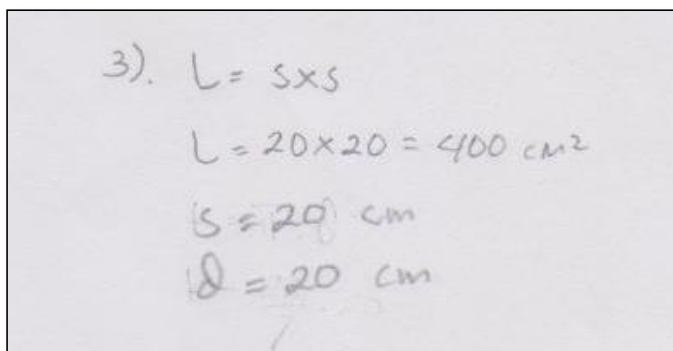 3). L = s×s
L = 20×20 = 400 cm²
s = 20 cm
d = 20 cm